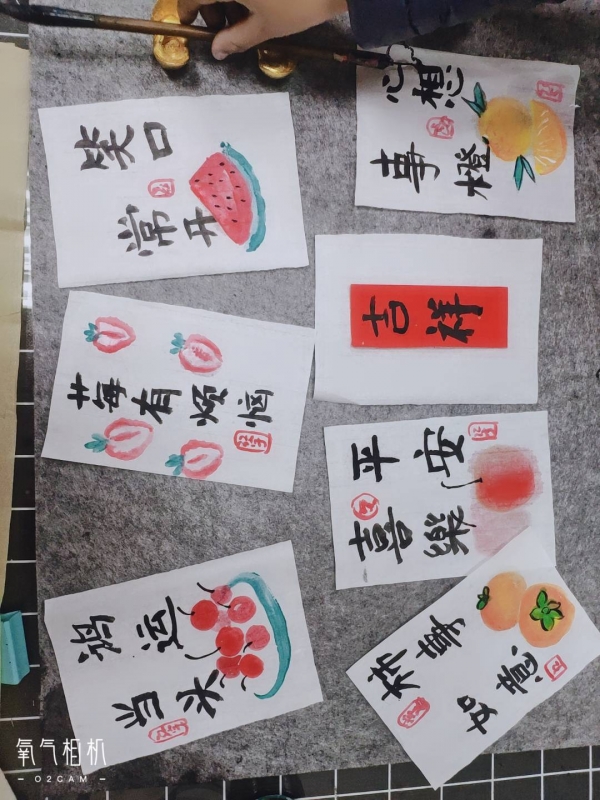 笑口
常开
心想
事橙
吉祥
莓有烦恼
平安
喜樂
鸿运
当头
柿事
如意
氧气相机
— O2CAM —